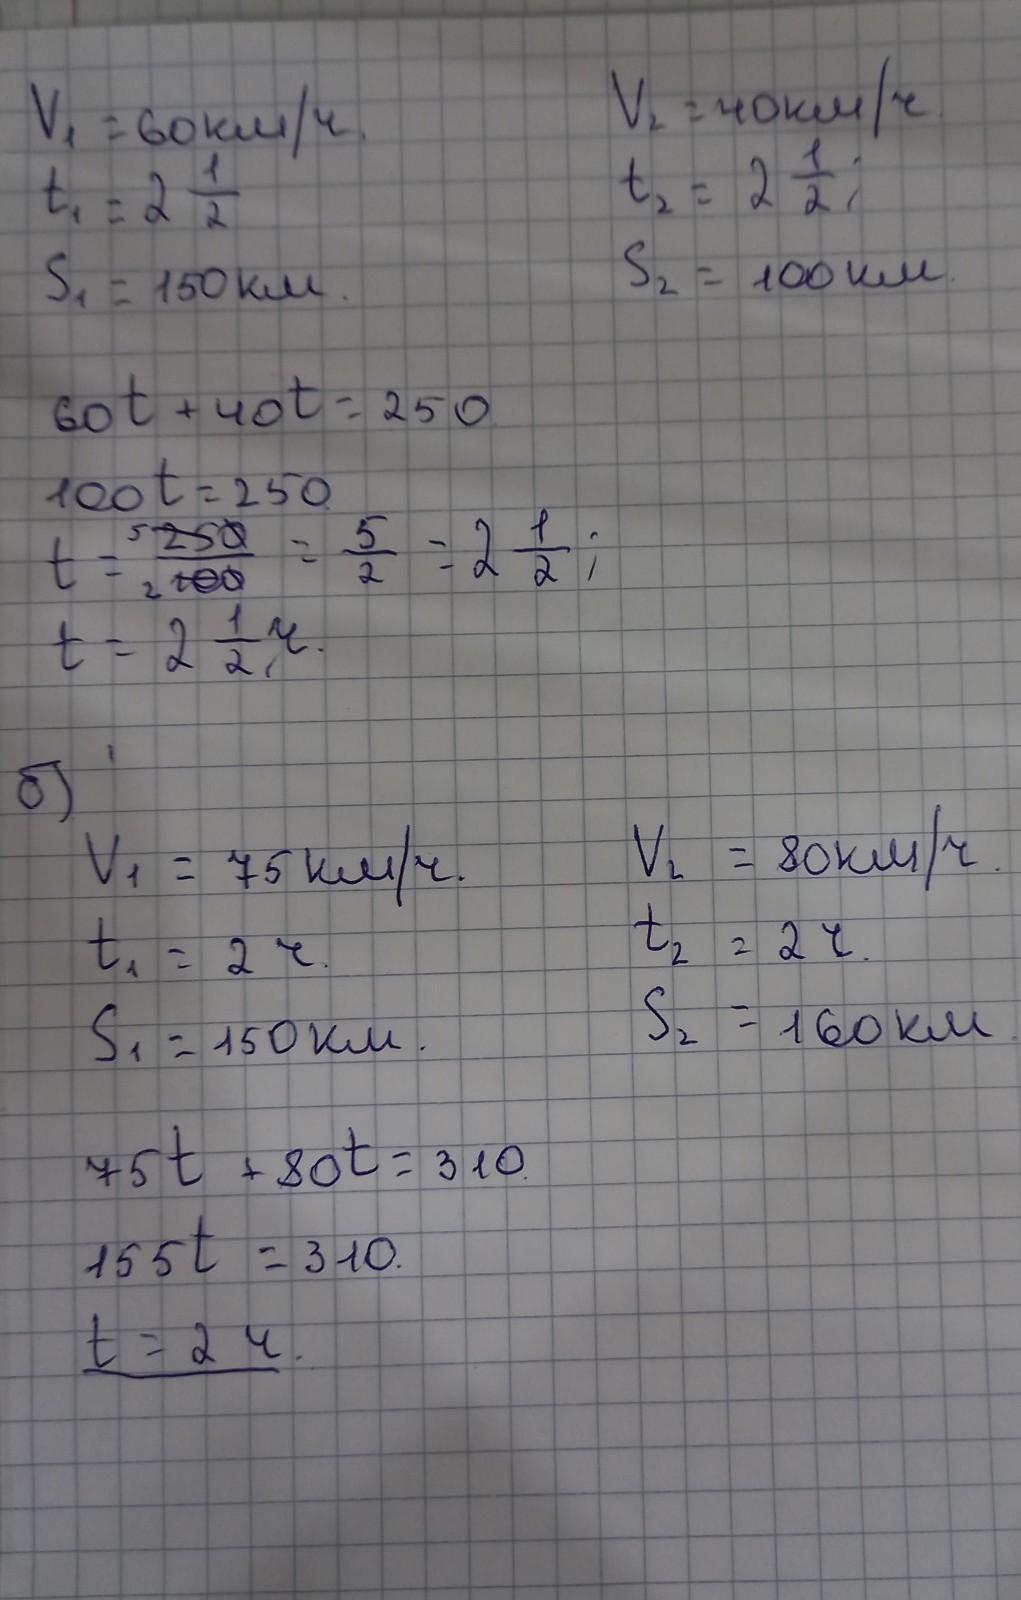 V₁ = 60км/ч. V₂ = 40км/ч.
t₁ = 2 1/2 t₂ = 2 1/2;
S₁ = 150км. S₂ = 100км.
60t + 40t = 250
100t = 250
t = 5 250/2 100 = 5/2 = 2 1/2;
t = 2 1/2 ч.
б)
V₁ = 75км/ч. V₂ = 80км/ч.
t₁ = 2 ч. t₂ = 2 ч.
S₁ = 150км. S₂ = 160км
75t + 80t = 310.
155t = 310.
t = 2 ч.